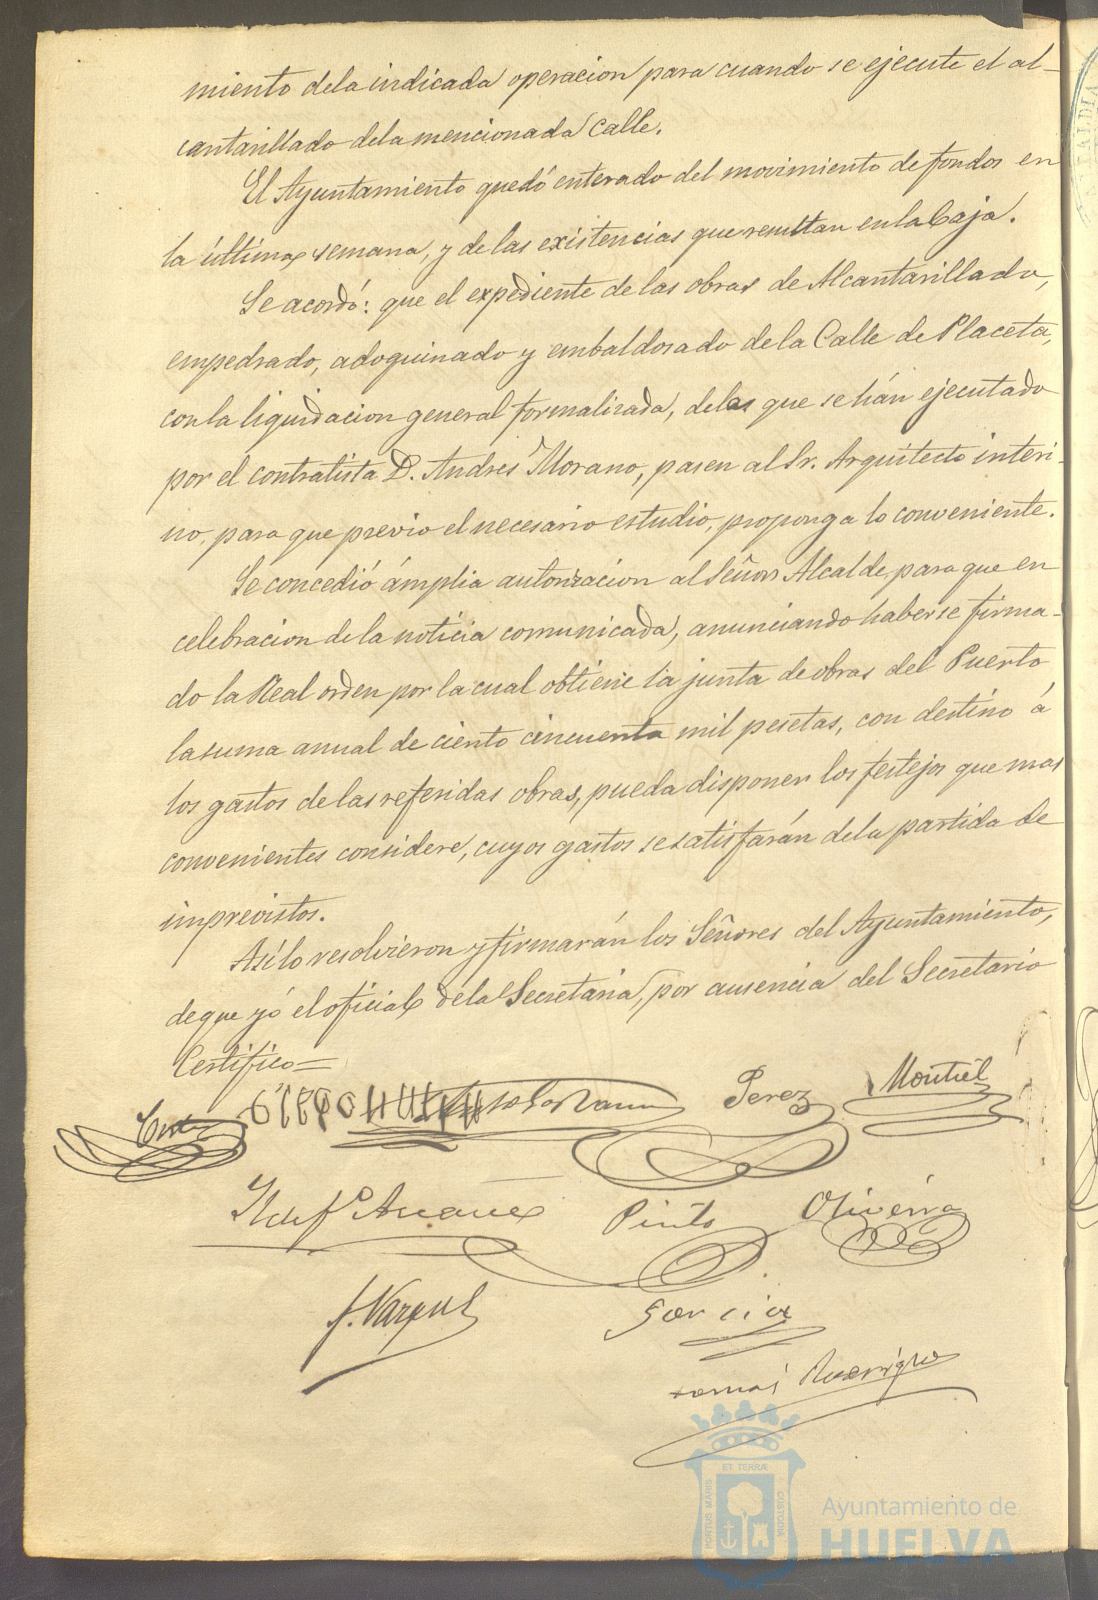 miento dela indicada operacion para cuando se ejecute el al-
cantarillado dela mencionada Calle.
El Ayuntamiento quedó enterado del movimiento de fondos en
la última semana, y de las existencias que resultan en la Caja.
Se acordó: que el expediente de las obras de Alcantarillado,
empedrado, adoquinado y embaldosado de la Calle de Placeta,
con la liquidacion general formalizada, delas que se hán ejecutado
por el contratista D. Andres Morano, pasen al Sr. Arquitecto interi-
no, para que previo el necesario estudio, proponga lo conveniente.
Se concedió ámplia autorizacion al Señor Alcalde, para que en
celebracion de la noticia comunicada, anunciando haberse firma-
do la Real orden por la cual obtiene la junta de obras del Puerto
la suma anual de ciento cincuenta mil pesetas, con destino á
los gastos de las referidas obras, pueda disponer los festejos que mas
convenientes considere, cuyos gastos se satisfarán dela partida de
imprevistos.
Asi lo resolvieron y firmarán los Señores del Ayuntamiento,
de que yó el oficial dela Secretaria, por ausencia del Secretario
Certifico=
Perez
Montiel
Pinto
Oliveira
J. Vazquez
Garcia
Tomás
PORTUS MARIS
ET TERRÆ
CUSTODIA
Ayuntamiento de
HUELVA